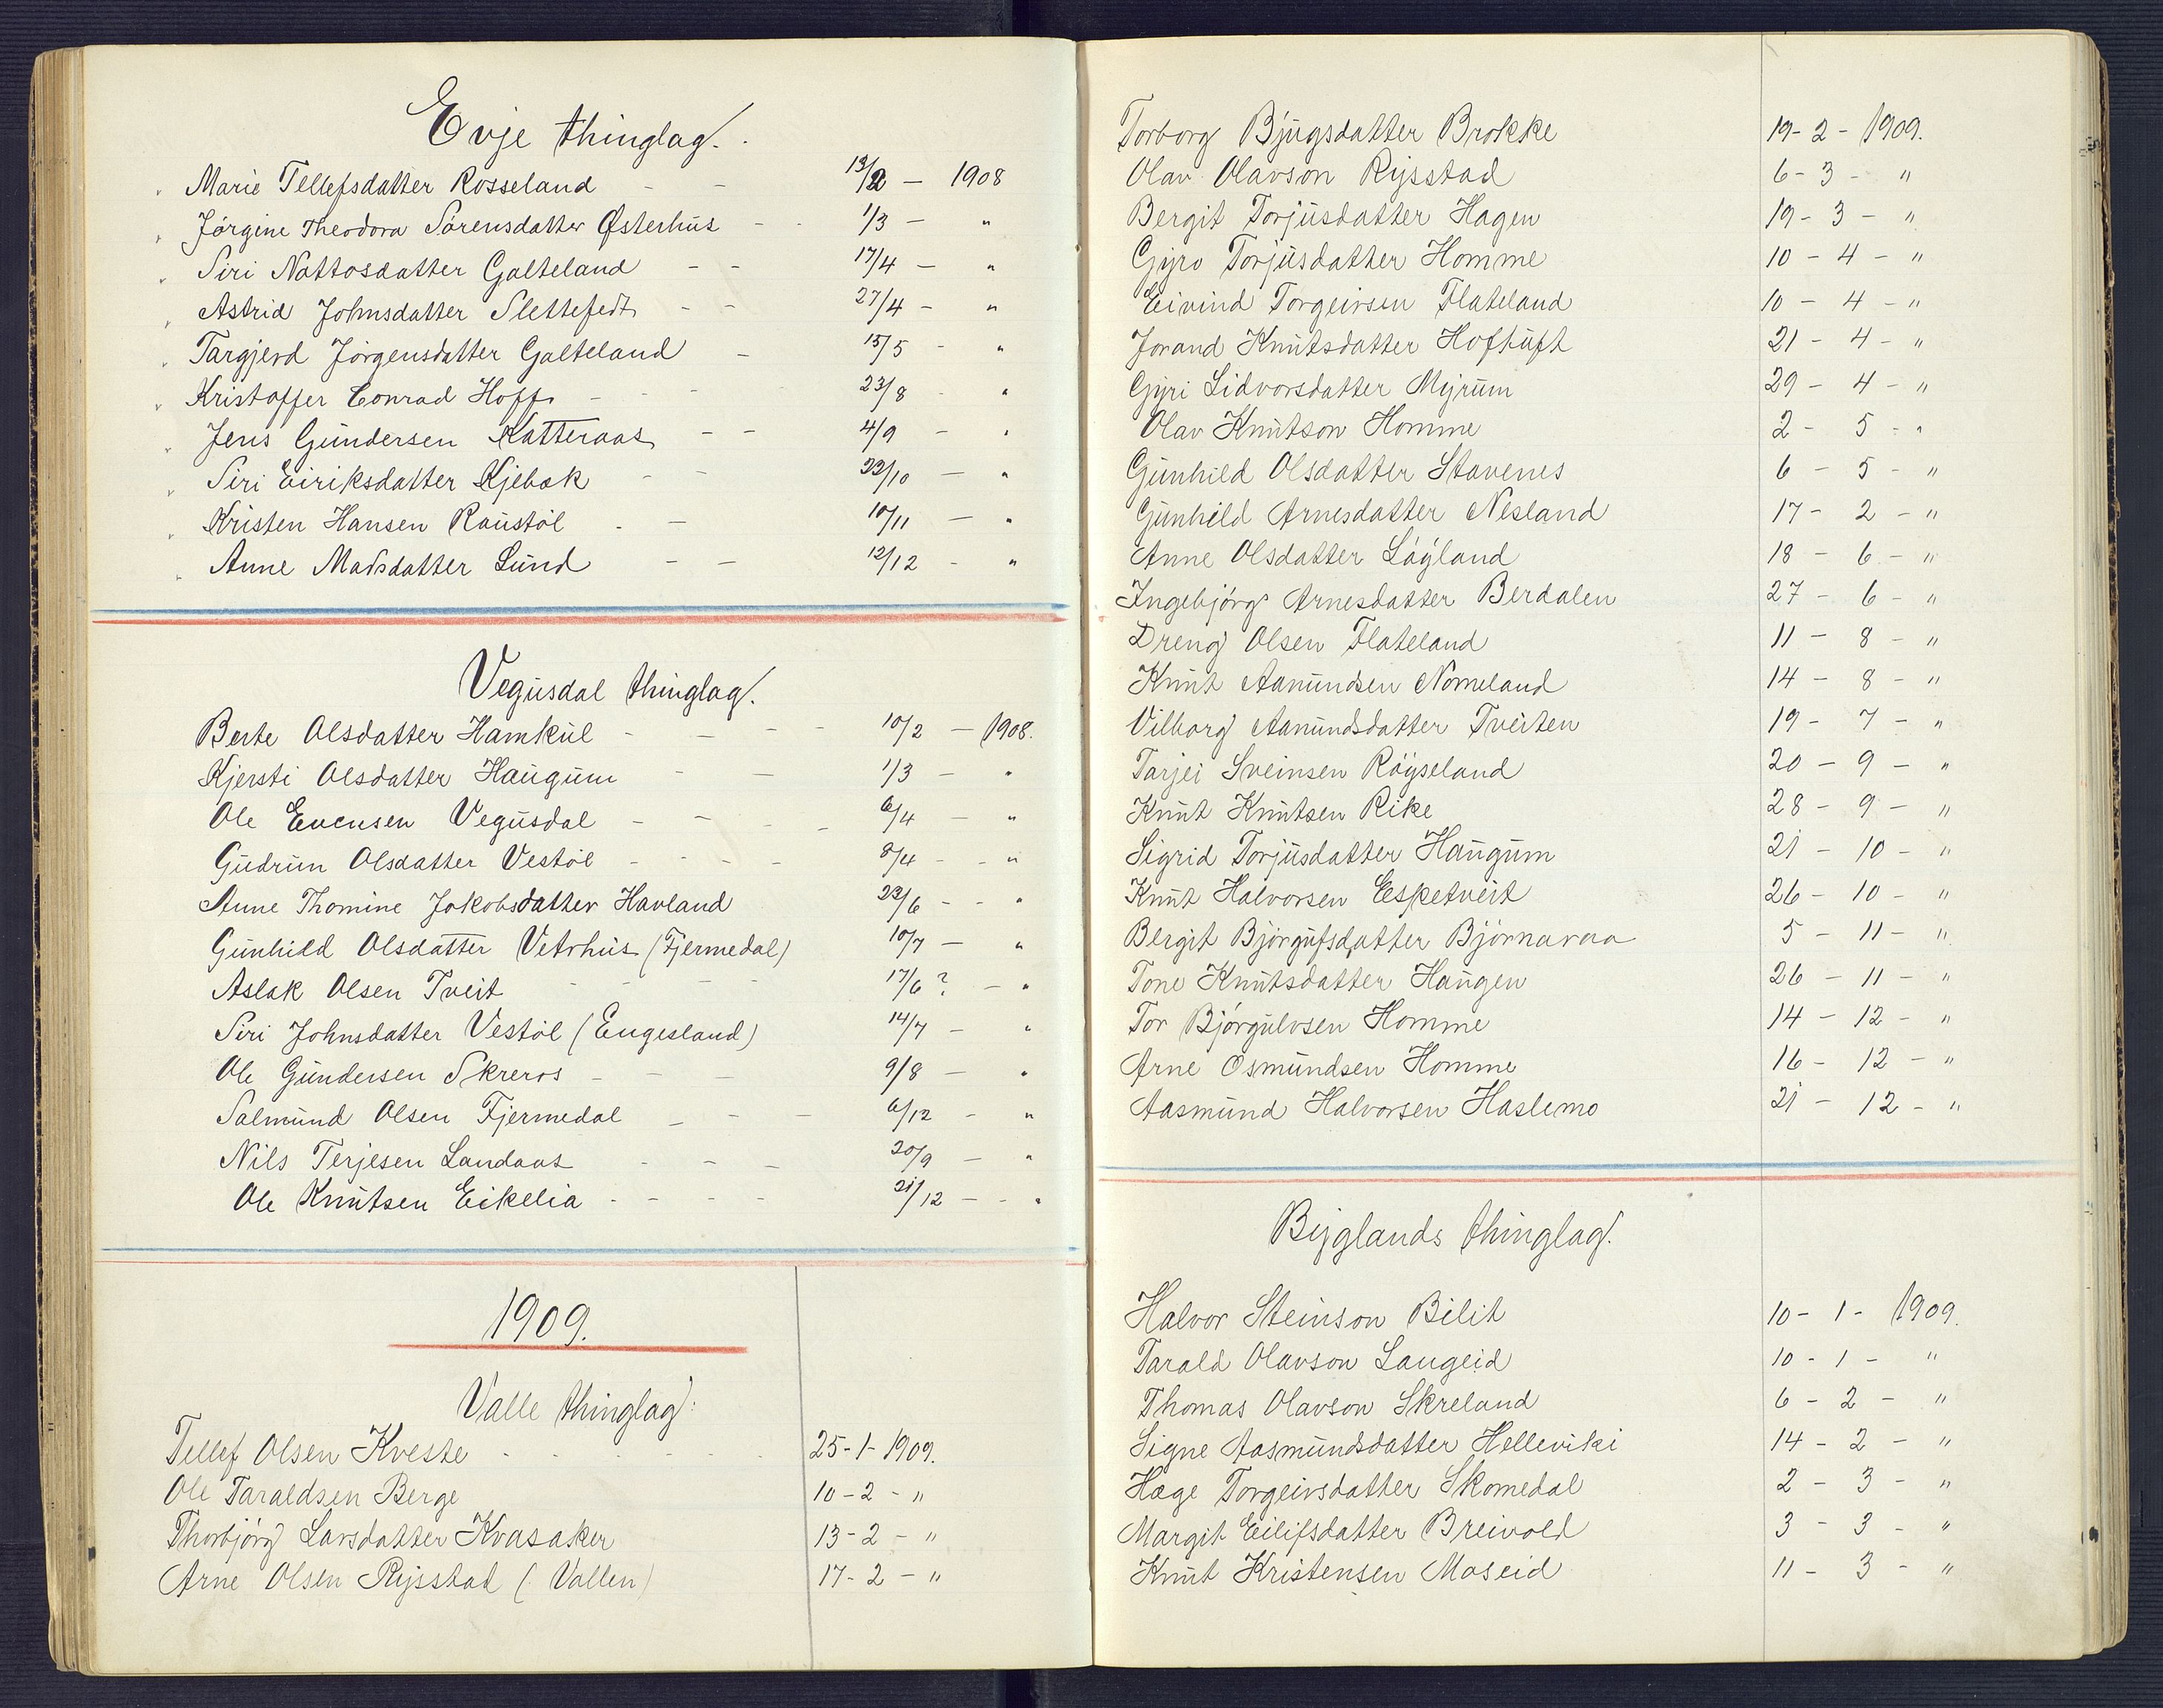 Evje thinglag.
Marie Tellefsdatter Rosseland - - 13/2 - 1908
Jörgine Theodora Sörensdatter Østerhus - - 1/3 - "
Siri Nattosdatter Galteland - - 17/4 - "
Astrid Johnsdatter Slettefedt - - 27/4 - "
Targjerd Jörgensdatter Galteland - 15/5 - "
Kristoffer Conrad Hoff - - - 23/8 - "
Jens Gundersen Katteraas - - 4/9 - "
Siri Eiriksdatter Kjebæk - - 22/10 - "
Kristen Hansen Raustöl - - 10/11 - "
Anne Madsdatter Lund - - 12/12 - "
Vegusdal thinglag.
Berte Olsdatter Hamkul - - - - 10/2 - 1908.
Kjersti Olsdatter Haugum - - 1/3 - "
Ole Evensen Vegusdal - - - - 6/4 - "
Gudrun Olsdatter Vestöl - - - - 8/4 - - "
Anne Thomine Jakobsdatter Havland 23/6 - - "
Gunhild Olsdatter Vetrhus (Fjermedal) 10/7 - "
Aslak Olsen Tveit - - - - 17/6 ? - "
Siri Johnsdatter Vestöl (Engesland) 14/7 - "
Ole Gundersen Skreros - - - 9/8 - "
Salmund Olsen Fjermedal - - - 6/12 - "
Nils Terjesen Landaas - - - 30/9 - "
Ole Knutsen Eikelia - - - - 21/12 - - "
1909.
Valle thinglag:
Tellef Olsen Kveste - - - - 25-1-1909.
Ole Taraldsen Berge 10-2 - "
Thorbjörg Larsdatter Kvasaker 13-2 - "
Arne Olsen Rysstad (Vallen) 17-2 - "
Torborg Bjugsdatter Brokke 19-2-1909.
Olav Olavson Rysstad 6-3 - "
Bergit Torjusdatter Hagen 19-3 - "
Gyro Torjusdatter Homme 10-4 - "
Eivind Torgeirsen Flateland 10-4 - "
Jorand Knutsdatter Hoftuft 21-4 - "
Gyri Lidvorsdatter Myrum 29-4 - "
Olav Knutson Homme 2-5 - "
Gunhild Olsdatter Stavenes 6-5 - "
Gunhild Arnesdatter Nesland 17-2 - "
Anne Olsdatter Lögland 18-6 - "
Ingebjörg Arnesdatter Berdalen 27-6 - "
Dreng Olsen Flateland 11-8 - "
Knut Aanundsen Nomeland 14-8 - "
Vilborg Aanundsdatter Tveiten 19-7 - "
Tarjei Sveinsen Röyseland 20-9 - "
Knut Knutsen Rike 28-9 - "
Sigrid Torjusdatter Haugum 21-10 - "
Knut Halvorsen Espetveit 26-10 - "
Bergit Björgufsdatter Björnaraa 5-11 - "
Tone Knutsdatter Haugen 26-11 - "
Tor Björgulvsen Homme 14-12 - "
Arne Osmundsen Homme 16-12 - "
Aasmund Halvorsen Haslemo 21-12 - "
Byglands thinglag.
Halvor Steinson Bilit 10-1-1909.
Tarald Olavson Laugeid 10-1 - "
Thomas Olavson Skreland 6-2 - "
Signe Aasmundsdatter Helleviki 14-2 - "
Hæge Torgeirsdatter Skomedal 2-3 - "
Margit Eilifsdatter Breivold 3-3 - "
Knut Kristensen Moseid 11-3 - "